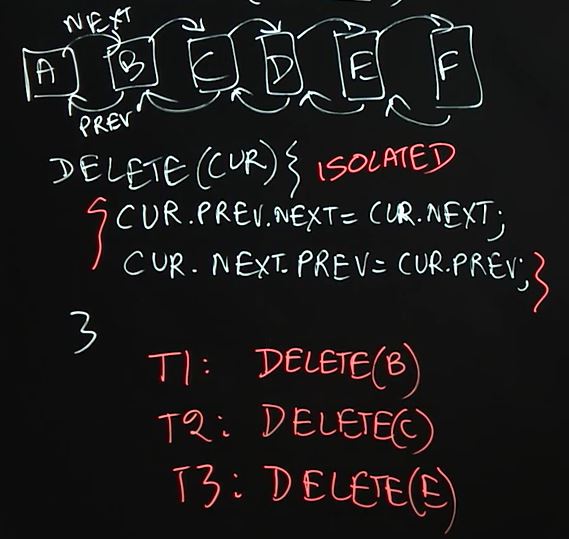 NEXT
A B C D E F
PREV
DELETE(CUR) { ISOLATED
{ CUR.PREV.NEXT = CUR.NEXT;
CUR.NEXT.PREV = CUR.PREV; }
}
T1: DELETE(B)
T2: DELETE(C)
T3: DELETE(E)